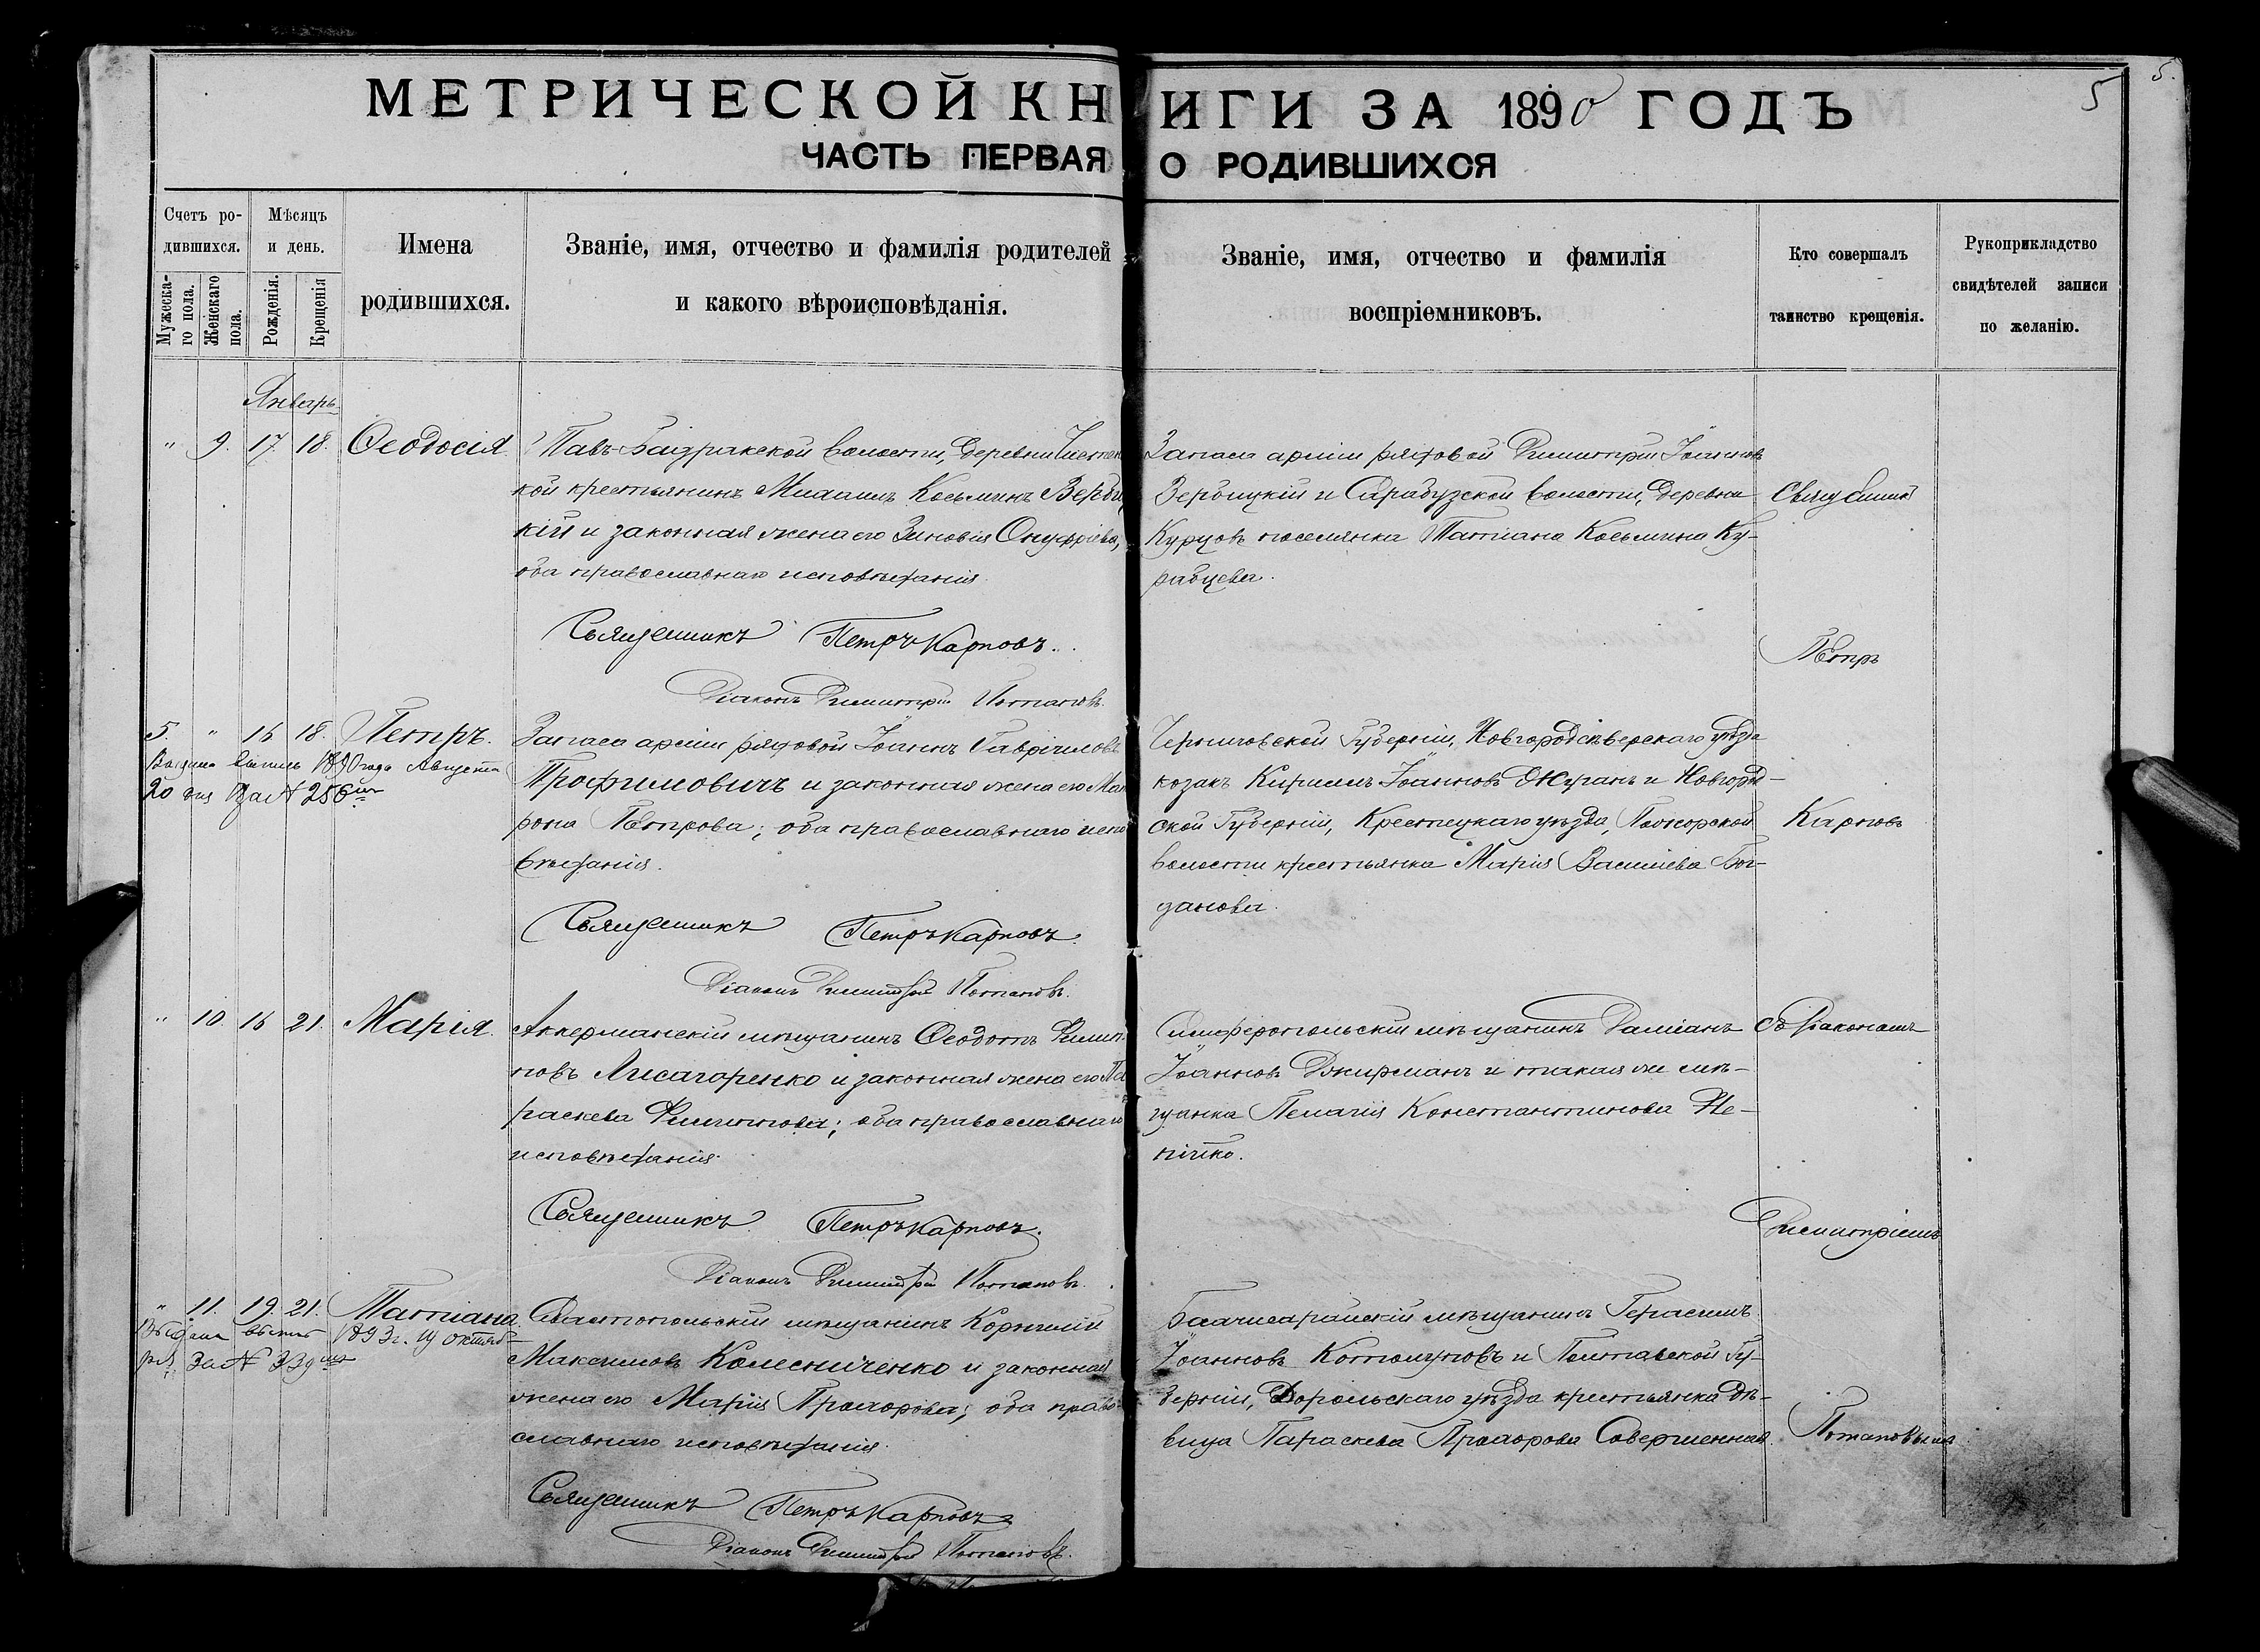 МЕТРИЧЕСКОЙ КНИГИ ЗА 1890 ГОДЪ
5
5.
ЧАСТЬ ПЕРВАЯ О РОДИВШИХСЯ
Счетъ ро-
дившихся.
Мужеска-
го пола.
Женскаго
пола.
Мѣсяцъ
и день.
Рожденія.
Крещенія
Имена
родившихся.
Званіе, имя, отчество и фамилія родителей
и какого вѣроисповѣданія.
Званіе, имя, отчество и фамилія
воспріемниковъ.
Кто совершалъ
таинство крещенія.
Рукоприкладство
свидѣтелей записи
по желанію.
Январь.
" 9. 17. 18. Ѳеодосія.
волости, деревни
кой крестьянинъ Михаилъ Косьминъ
кій и законная жена его Зиновія Онуфріева,
оба православнаго исповѣданія.
Священникъ Петръ Карповъ.
Діаконъ Димитрій Потаповъ.
Запаса арміи рядовой Димитрій Іоанновъ
Вербицкій и Сарабузской волости, деревни
Курцовъ поселянка Татіана Косьмина Ку-
рабцева.
5. " 16 18. Петръ.
Выдана выпись 1890 года Августа
20 дня за № 256
Запаса арміи рядовой Іоаннъ Гавріиловъ
Трофимовичъ и законная жена его Мат
рона Петрова; оба православнаго испо
вѣданія.
Священникъ Петръ Карповъ.
Діаконъ Димитрій Потаповъ.
Черниговской Губерніи, Новгородсѣверскаго уѣзда
козакъ Кириллъ Іоанновъ Журанъ и Новгород-
ской Губерніи, Крестецкаго уѣзда,
волости крестьянка Марія Василіева Бог-
данова.
" 10. 16 21. Марія.
Аккерманскій мѣщанинъ Ѳеодотъ Филип
повъ Лисагоренко и законная жена его Па
раскева Филиппова; оба православнаго
исповѣданія.
Священникъ Петръ Карповъ.
Діаконъ Димитрій Потаповъ.
Симферопольскій мѣщанинъ Даміанъ
Іоанновъ Джирманъ и такая же мѣ-
щанка Пелагія Константинова Не-
пійко.
" 11. 19. 21. Татіана.
Выдана выпись 1893 г. 19 октяб-
ря за № 339
Севастопольскій мѣщанинъ Корнилій
Максимовъ Колесниченко и законная
жена его Марія Прохорова; оба право
славнаго исповѣданія.
Священникъ Петръ Карповъ
Діаконъ Димитрій Потаповъ.
Бахчисарайскій мѣщанинъ Герасимъ
Іоанновъ и Полтавской Гу-
берніи, Хорольскаго уѣзда крестьянка дѣ-
вица Параскева Прохорова Совершенная.
Священникъ
Петръ
Карповъ
съ Діакономъ
Димитріемъ
Потаповымъ